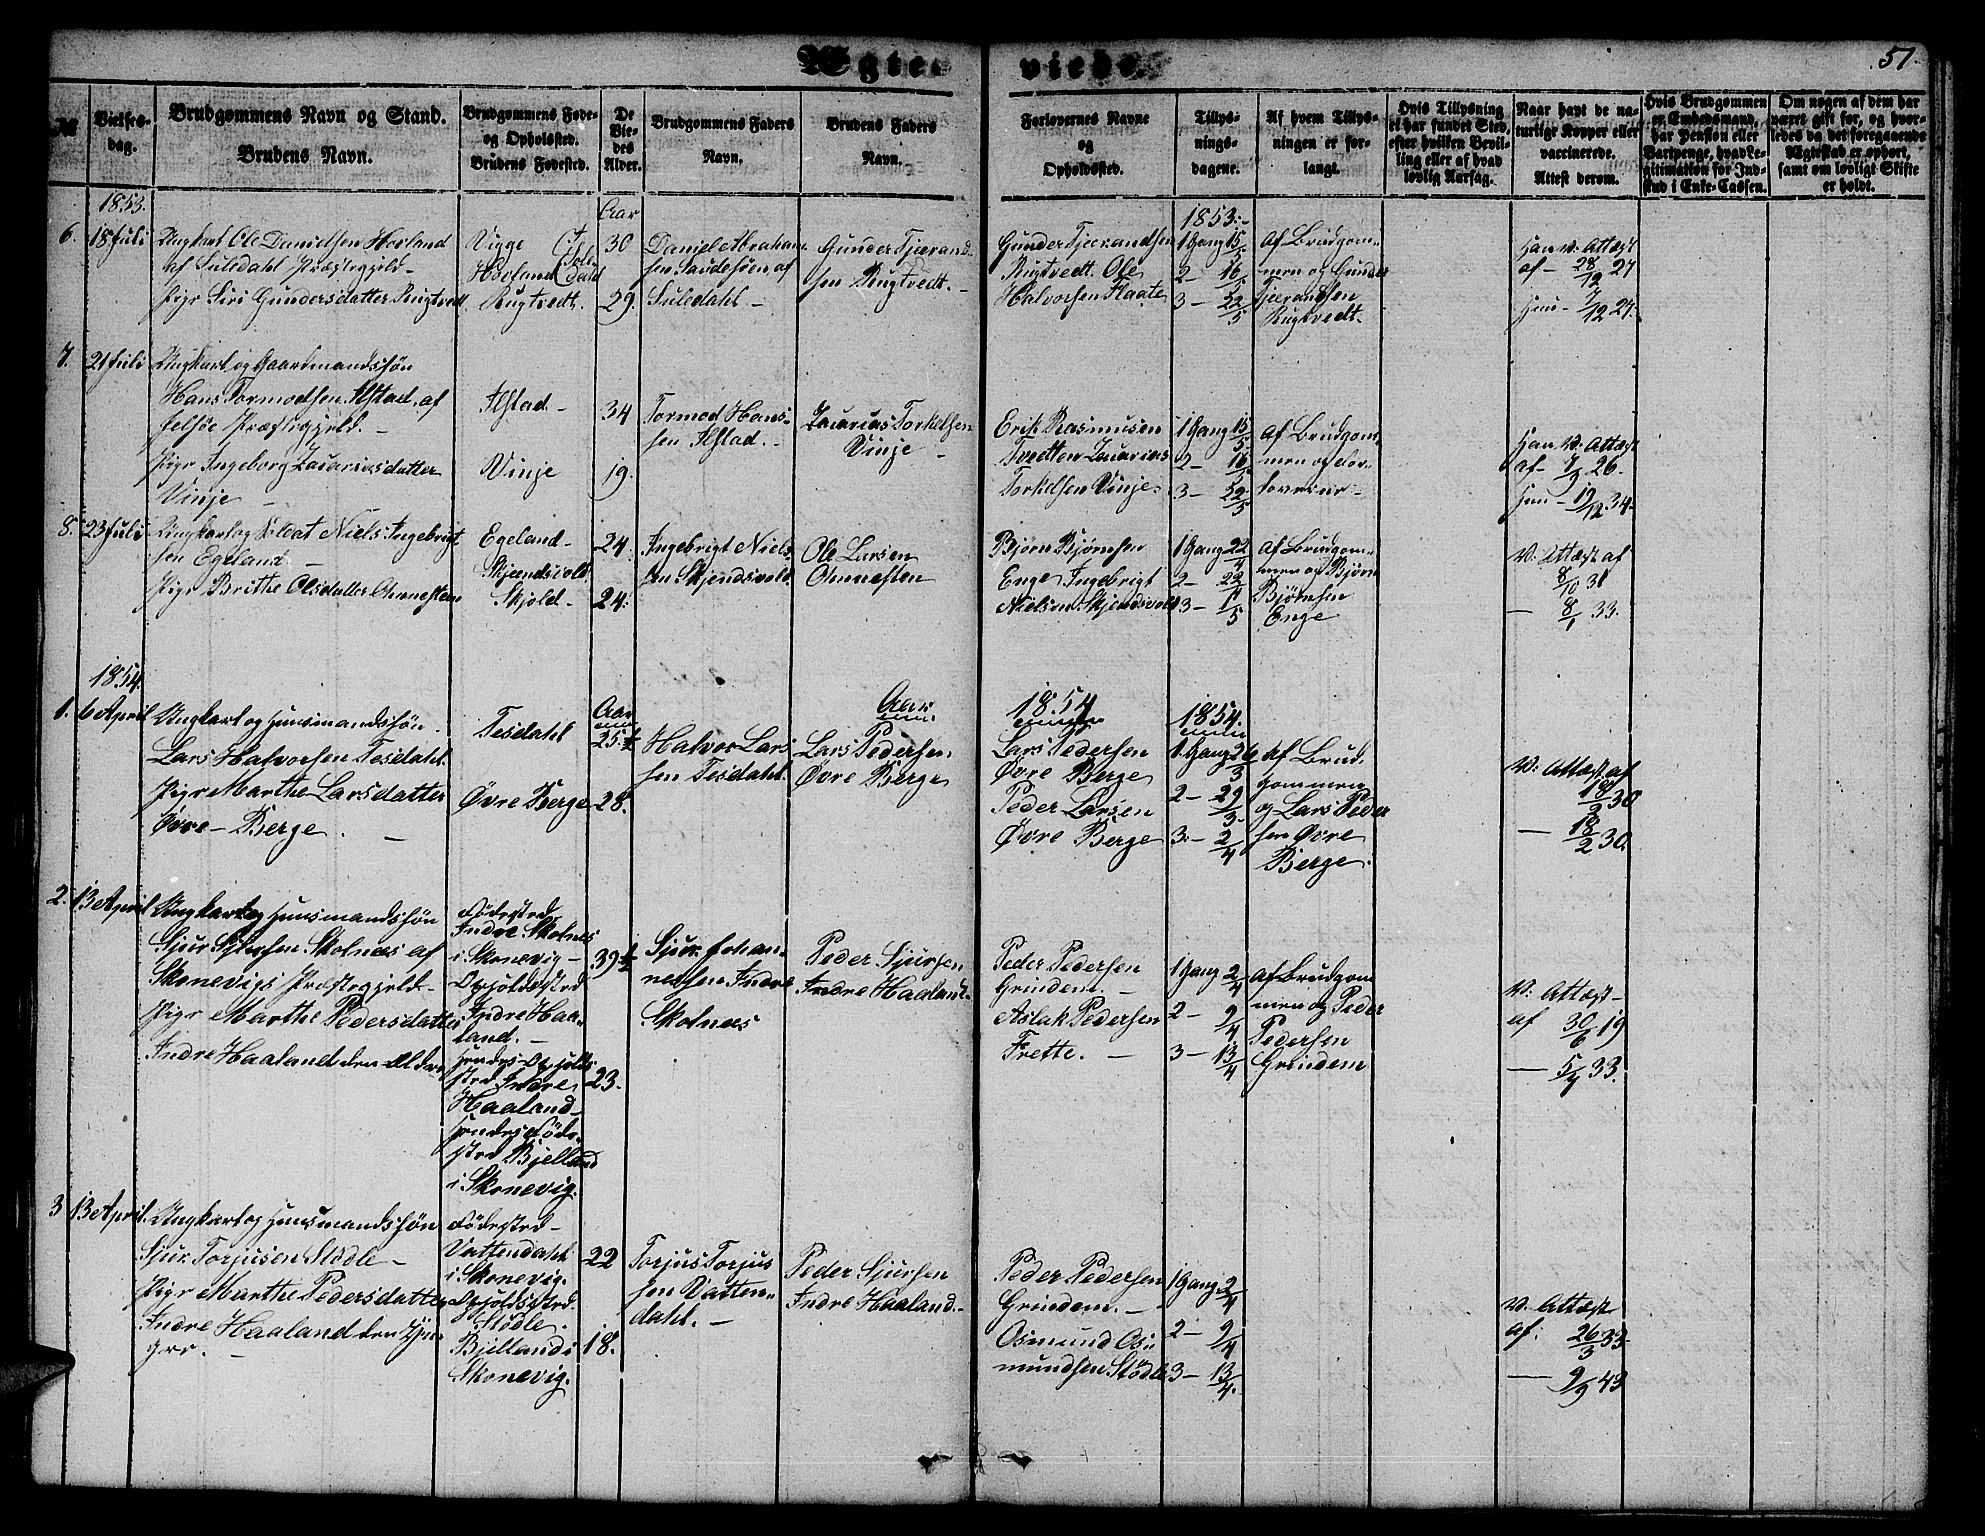 Ægte-viede.
51.
№
Vielses-
dag.
Brudgommens Navn og Stand.
Brudens Navn.
Brudgommens Føde-
og Opholdsted.
Brudens Fødested.
De
Vie-
des
Alder.
Brudgommens Faders
Navn.
Brudens Faders
Navn.
Forlovernes Navne
og
Opholdssted.
Tillys-
nings-
dagene.
Af hvem Tillys-
ningen er for-
langt.
Hvis Tillysning
ei har fundet Sted,
efter hvilken Bevil-
ling eller af hvad
lovlig Aarsag.
Naar havt de na-
turlige Kopper eller
vaccinerede.
Attest derom.
Hvis Brudgommen
er Embedsmand,
har Pension eller
Vartpenge, hvad Le-
gitimation for Ind-
skud i Enke-Cassen.
Om nogen af dem har
været gift før, og hvor-
ledes da det foregaaende
Ægteskab er ophørt,
samt om lovligt Skifte
er holdt.
1853.
Aar
1853.
6.
18 Juli
Ungkarl Ole Danielsen Hovland
af Suledahl Præstegjeld-
Pige Siri Gundersdatter Rugtvedt
Vigge
Hovland
Rugtvedt.
30
29.
Daniel Abraham-
sen Saudesøen af
Suledahl -
Gunder Tjerand-
sen Rugtvedt. -
Gunder Tjerandsen
Rugtvedt. Ole
Halvorsen Flaate
1 Gang 15/5
2- 16/5
3- 22/5
Af Brudgom-
men og Gunder
Tjerandsen
Rugtvedt.
Han v. Attest
af- 28/12 27
Hun - 7/12 27.
7.
21 Juli
Ungkarl og Gaardmandssøn
Hans Tormodsen Ilstad. af
Jelsøe Præstegjeld. -
Pige Ingeborg Zacariasdatter
Vinje -
Ilstad -
Vinje
34
19.
Tormod Hans-
sen Ilstad. -
Zacarias Torkelsen
Vinje -
Erik Rasmusen
Tvedten Zacarias
Torkelsen Vinje.
1 Gang 15/5
2- 16/5
3- 22/5
Af Brudgom-
men og for-
loverne -
Han v. Attest
af- 7/9 26.
Hun - 19/12 34.
8.
23 Juli
Ungkarl og Soldat Niels Ingebrigt-
sen Egeland. -
Pige Brithe Olsdatter Omnesten
Egeland -
Skjendsvold
Skjold -
24.
24.
Ingebrigt Niels-
sen Skjendsvold.
Ole Larsen
Omnesten
Bjørn Bjørnsen
Enge Ingebrigt
Nielsen Skjendsvold
1 Gang 22/4
2- 22/4
3- 1/5
Af Brudgom-
men og Bjørn
Bjørnsen
Enge
V. Attest af
8/10 31
- 8/1 33.
1854.
Aar
Aar
1854
1854.
1.
6 April
Ungkarl og Huusmandssøn.
Lars Halvorsen Tesdahl.
Pige Marthe Larsdatter
Øvre - Berge. -
Tesdahl
Øvre Berge
25 1/2
28.
Halvor Lars
sen Tesdahl.
Lars Pedersen
Øvre Berge
Lars Pedersen
Øvre Berge
Peder Larsen
Øvre Berge
1 Gang 26/3
2- 29/3.
3.- 2/4
Af Brud-
gommen
og Lars Peder
sen Øvre
Berge.
V. Attest af
18/2 30
- 18/2 30.
2.
13 April
Ungkarl og Huusmandssøn
Sjur Sjursen Skolnæs af
Skonevigs Præstegjeld-
Pige Marthe Pedersdatter
Indre Haaland den Ældre
Fødested
Indre Skolnes
i Skonevig -
Opholdssted
Indre Haa-
land. -
Hendes Opholds
sted Indre
Haaland -
Hendes Føde-
sted Bjelland
i Skonevig.
39 1/2
23.
Sjur Johan-
nessen Indre
Skolnæs
Peder Sjursen
Indre Haaland-
Peder Pedersen
Grindem. -
Aslak Pedersen
Frette. -
1 Gang 2/4
2- 9/4
3- 13/4
Af Brudgom
men og Peder
Pedersen
Grindem
V. Attest-
af 30/6 19
- 5/7 33.
3
13 April.
Ungkarl og Huusmandssøn
Sjur Torjusen Stødle -
Pige Marthe Pedersdatter
Indre Haaland den Yn-
gre. -
Fødested -
Vattendahl
i Skonevig.
Opholdssted.
Stødle.
Bjelland i
Skonevig.
22
18.
Torjus Torjus
sen Vatten-
dahl. -
Peder Sjursen
Indre Haaland.-
Peder Pedersen
Grindem. -
Osmund Os-
mundsen Stødle
1 Gang 2/4
2- 9/4
3- 13/4.
V. Attest
af: 26/3 33
- 9/9 43